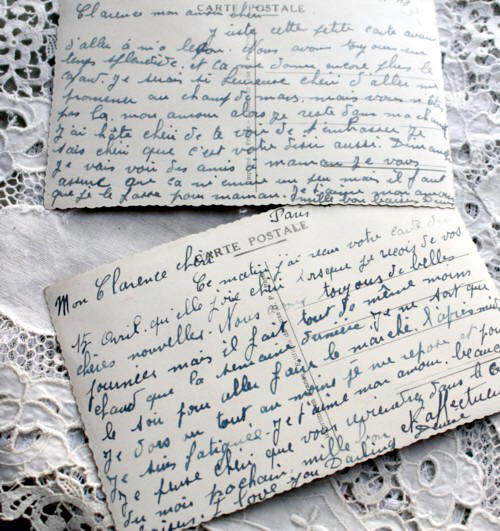 CARTE POSTALE
Clarence mon amour chéri
Juste cette petite carte avant
d'aller à ma leçon. Nous avons toujours un
temps splendide. et ça me donne encore plus le
cafard. Je serais si heureuse chéri d'aller me
promener au champ de mars. mais vous n'êtes
pas là, mon amour alors je reste dans ma chambre
J'ai hâte chéri de te voir de t'embrasser Je
sais chéri que c'est votre désir aussi. Dimanche
Je vais voir des amis maman Je vous
assure que ça m'ennuie un peu mais il faut
que je le fasse pour maman. Je t'aime mon amour
mille bon baisers Denise
Paris
CARTE POSTALE
Mon Clarence chéri
Ce matin j'ai reçu votre carte du
15 Avril. qu'elle joie chéri lorsque je reçois de vos
chères nouvelles. Nous avons toujours de belles
journées mais il fait tout de même moins
chaud que la semaine dernière. Je ne sort que
le soir pour aller faire le marché. l'après-midi
Je dors ou tout au moins je me repose et
Je suis fatiguée. Je t'aime mon amour. beaucoup
Je pense chéri que vous reprendrez dans le
du mois prochain. mille bon et affectueux
baisers. I love you Darling
Denise